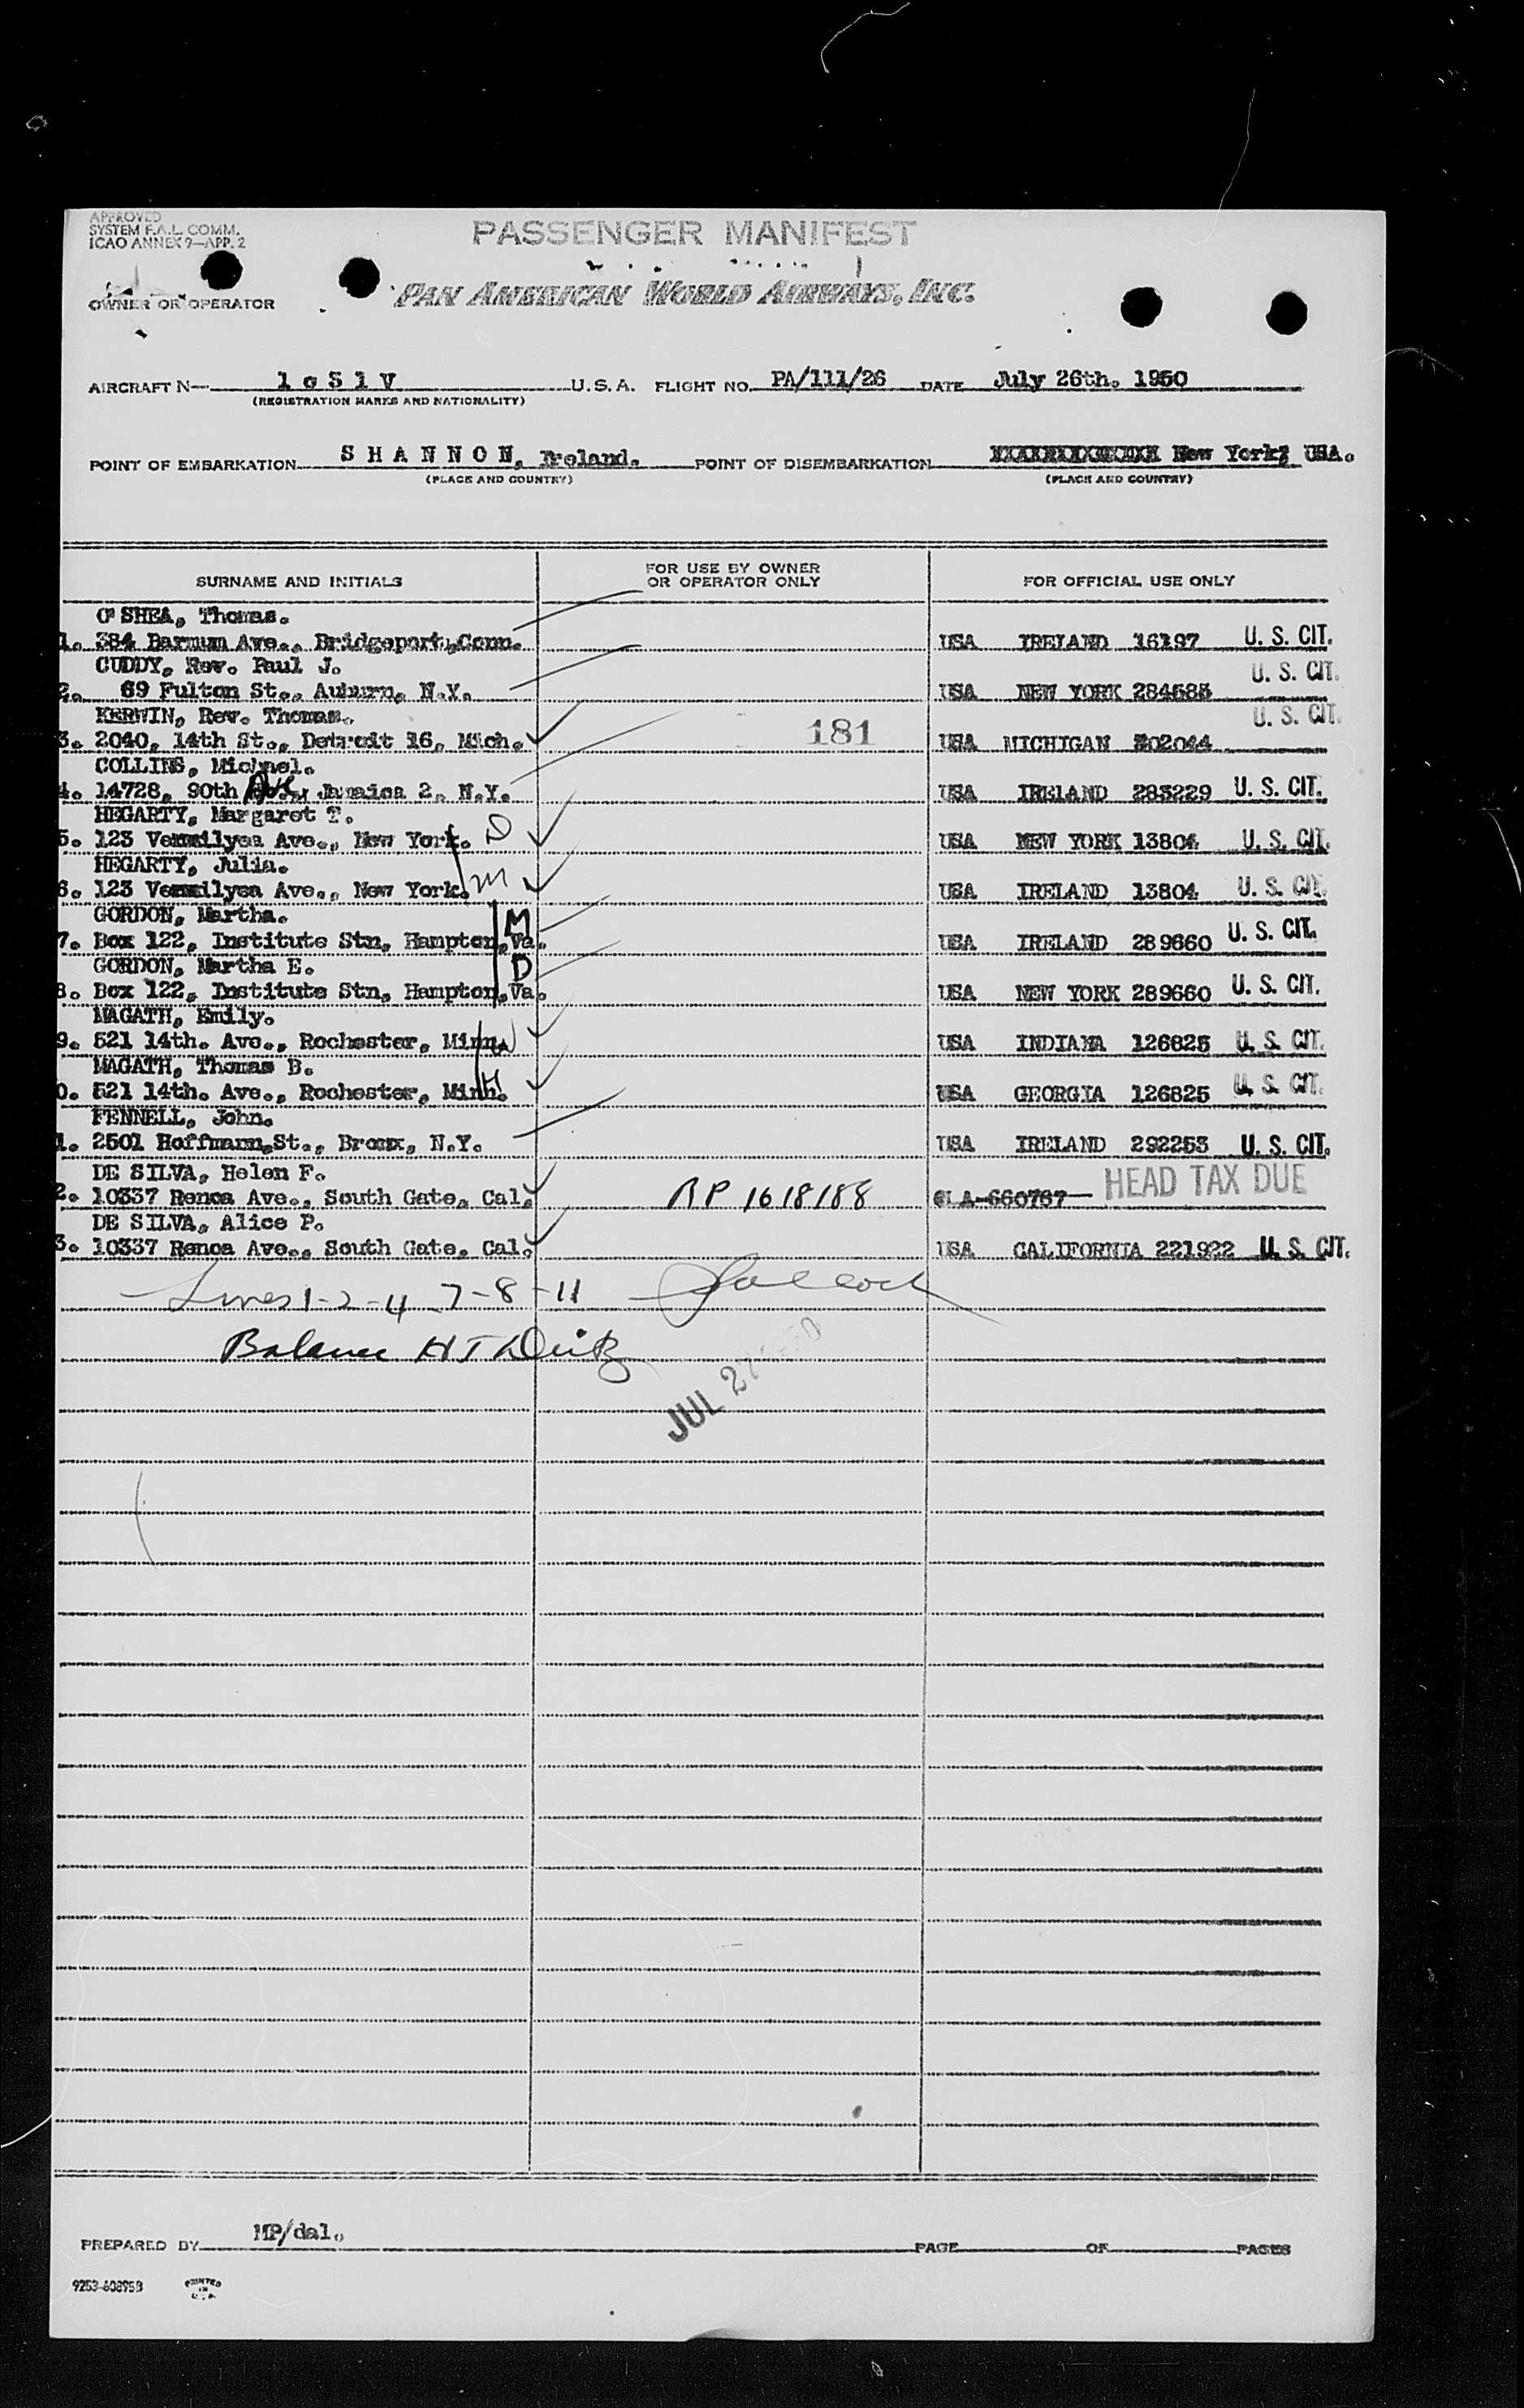 APPROVED
SYSTEM F.A.L. COMM.
ICAO ANNEX 9—APP. 2
PASSENGER MANIFEST
OWNER OR OPERATOR
PAN AMERICAN WORLD AIRWAYS, INC.
AIRCRAFT N— 1 o 5 1 V U.S.A. FLIGHT NO. PA/111/26 DATE July 26th. 1950
(REGISTRATION MARKS AND NATIONALITY)
POINT OF EMBARKATION S H A N N O N, Ireland. POINT OF DISEMBARKATION New York, USA.
(PLACE AND COUNTRY) (PLACE AND COUNTRY)
SURNAME AND INITIALS FOR USE BY OWNER OR OPERATOR ONLY FOR OFFICIAL USE ONLY
O'SHEA, Thomas.
1. 384 Barnum Ave., Bridgeport, Conn. USA IRELAND 16197 U. S. CIT.
CUDDY, Rev. Paul J.
2. 69 Fulton St., Auburn, N.Y. USA NEW YORK 284585 U. S. CIT.
KERWIN, Rev. Thomas.
3. 2040, 14th St., Detroit 16, Mich. 181 USA MICHIGAN 202044 U. S. CIT.
COLLINS, Michael.
4. 14728, 90th Ave, Jamaica 2, N.Y. USA IRELAND 283229 U. S. CIT.
HEGARTY, Margaret T.
5. 123 Vermilyea Ave., New York. D USA NEW YORK 13804 U. S. CIT.
HEGARTY, Julia.
6. 123 Vermilyea Ave., New York. M USA IRELAND 13804 U. S. CIT.
GORDON, Martha.
7. Box 122, Institute Stn, Hampton, Va. M USA IRELAND 289660 U. S. CIT.
GORDON, Martha E.
8. Box 122, Institute Stn, Hampton, Va. D USA NEW YORK 289660 U. S. CIT.
MAGATH, Emily.
9. 521 14th. Ave., Rochester, Minn. W USA INDIANA 126825 U. S. CIT.
MAGATH, Thomas B.
0. 521 14th. Ave., Rochester, Minn. H USA GEORGIA 126825 U. S. CIT.
FENNELL, John.
1. 2501 Hoffmann, St., Bronx, N.Y. USA IRELAND 292253 U. S. CIT.
DE SILVA, Helen F.
2. 10337 Renoa Ave., South Gate, Cal. RP 1618188 LA-660767 HEAD TAX DUE
DE SILVA, Alice P.
3. 10337 Renoa Ave., South Gate, Cal. USA CALIFORNIA 221922 U. S. CIT.
Lines 1-2-4-7-8-11
Balance
JUL 2
PREPARED BY MP/dal. PAGE OF PAGES
9253-608953 PRINTED IN U.S.A.